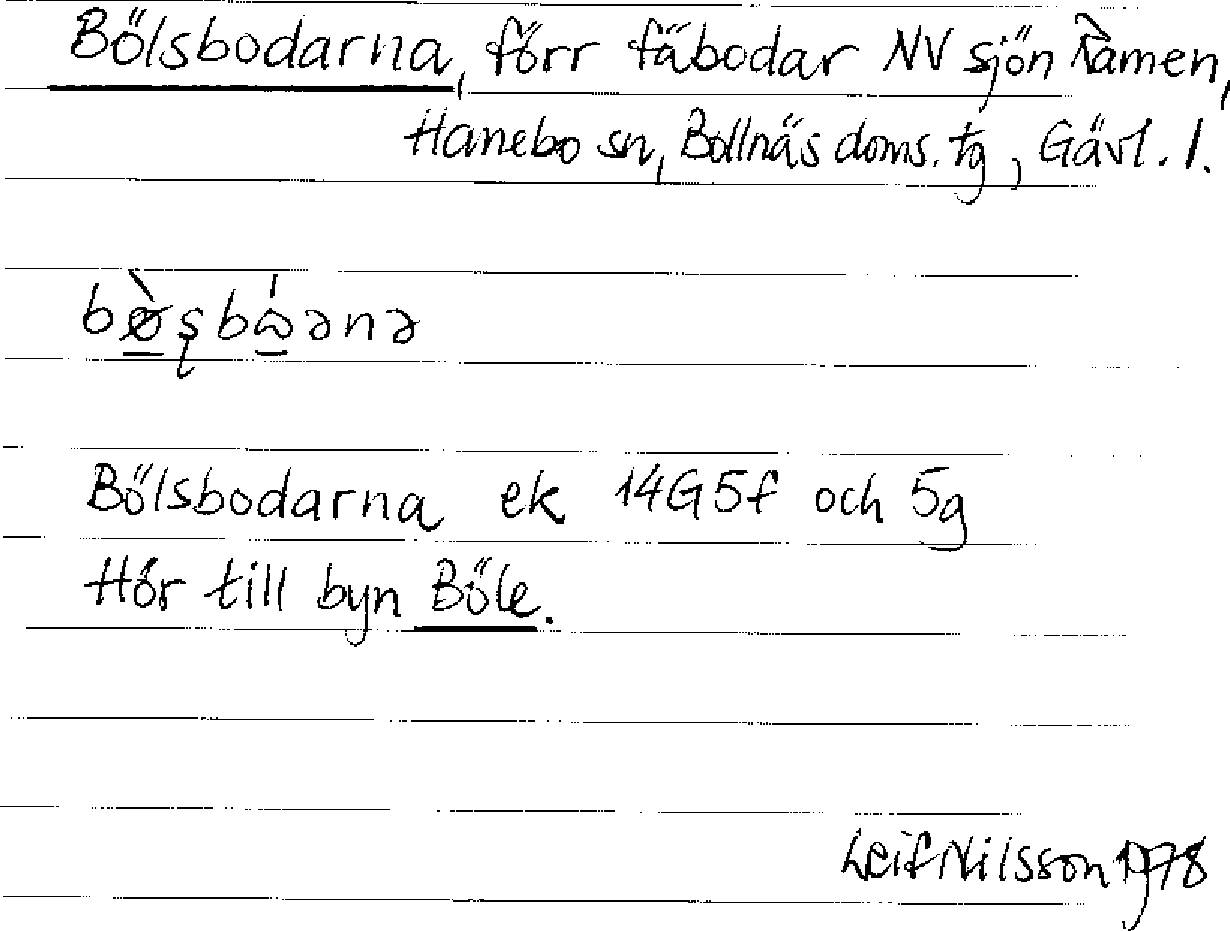 Bölsbodarna, förr fäbodar NV sjön Ramen,
Hanebo sn, Bollnäs doms. tg, Gävl. l.
Bölsbodarna ek 14G5f och 5g
Hör till byn Böle.
Leif Nilsson 1978